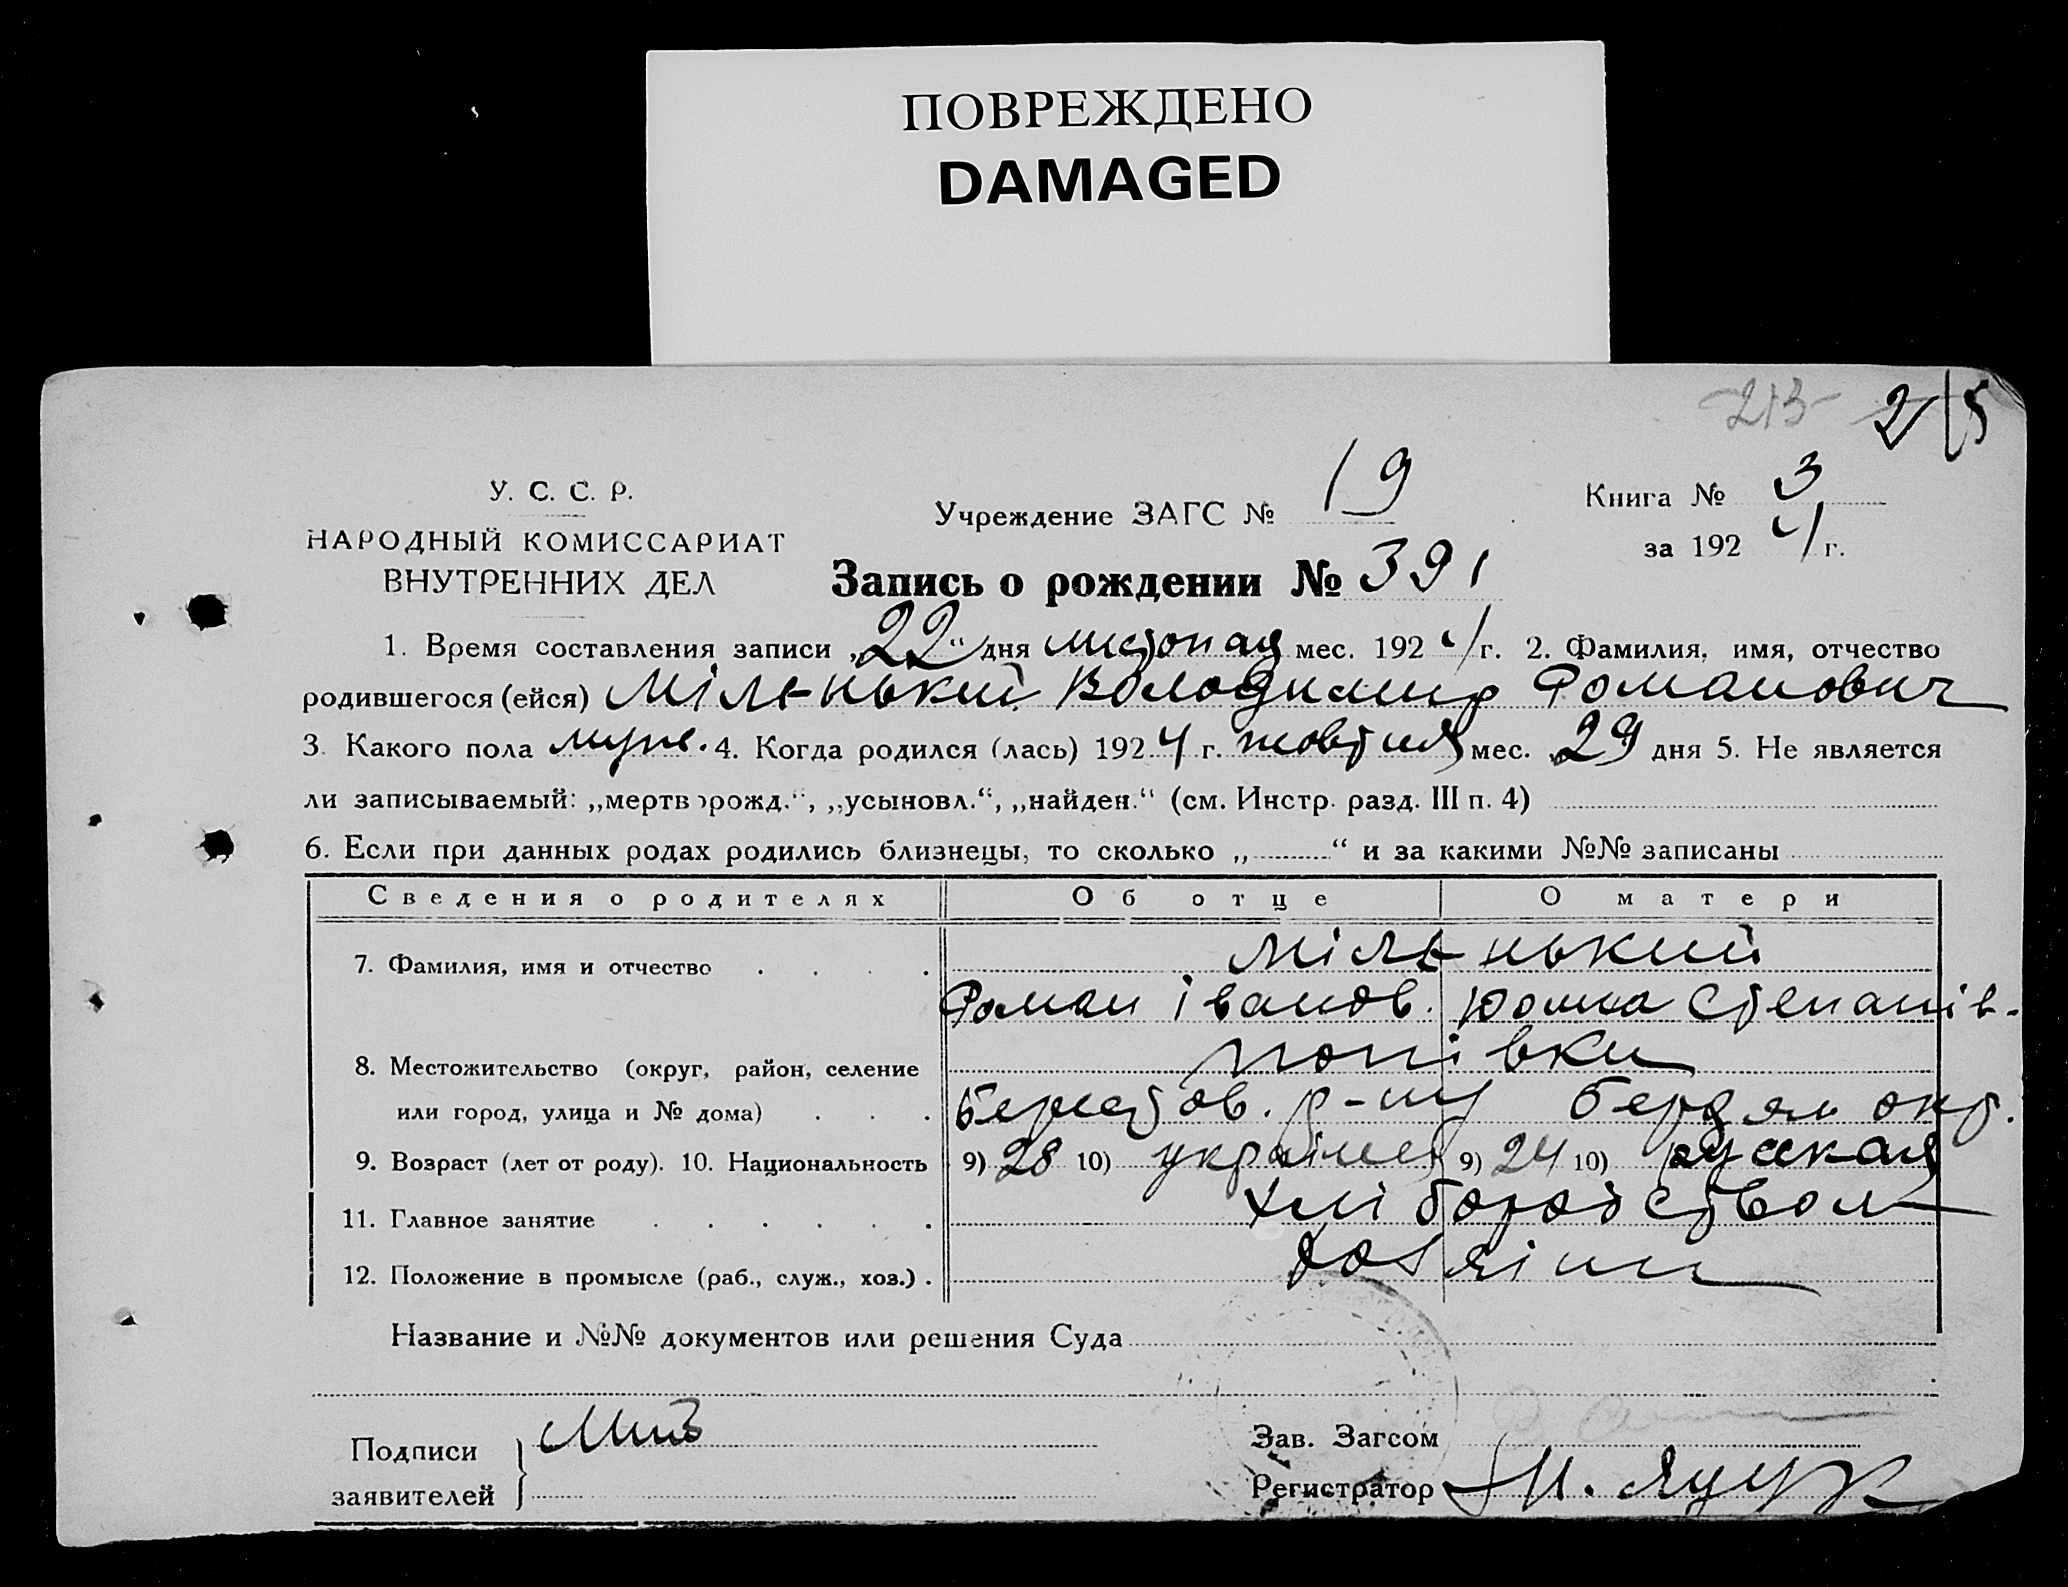 ПОВРЕЖДЕНО
DAMAGED
213 215
У. С. С. Р.
НАРОДНЫЙ КОМИССАРИАТ
ВНУТРЕННИХ ДЕЛ
Учреждение ЗАГС № 19
Книга № 3
за 1924 г.
Запись о рождении № 391
1. Время составления записи „22“ дня листопад мес. 1924 г. 2. Фамилия, имя, отчество
родившегося (ейся) Мільнький Володимир Романович
3. Какого пола муж. 4. Когда родился (лась) 1924 г. жовтня мес. 29 дня 5. Не является
ли записываемый: „мертворожд.“, „усыновл.“, „найден.“ (см. Инстр. разд. III п. 4)
6. Если при данных родах родились близнецы, то сколько „ “ и за какими №№ записаны
Сведения о родителях Об отце О матери
7. Фамилия, имя и отчество . . . . Мільнький
Роман Іванов. Юлка Степанів.
8. Местожительство (округ, район, селение Попівки
или город, улица и № дома) . . . Берестов. р-ну Бердян окр.
9. Возраст (лет от роду). 10. Национальность 9) 28 10) українец 9) 24 10) руская
11. Главное занятие . . . . . . хліборобством
12. Положение в промысле (раб., служ., хоз.) . хозяіни
Название и №№ документов или решения Суда
Подписи
заявителей
Зав. Загсом
Регистратор